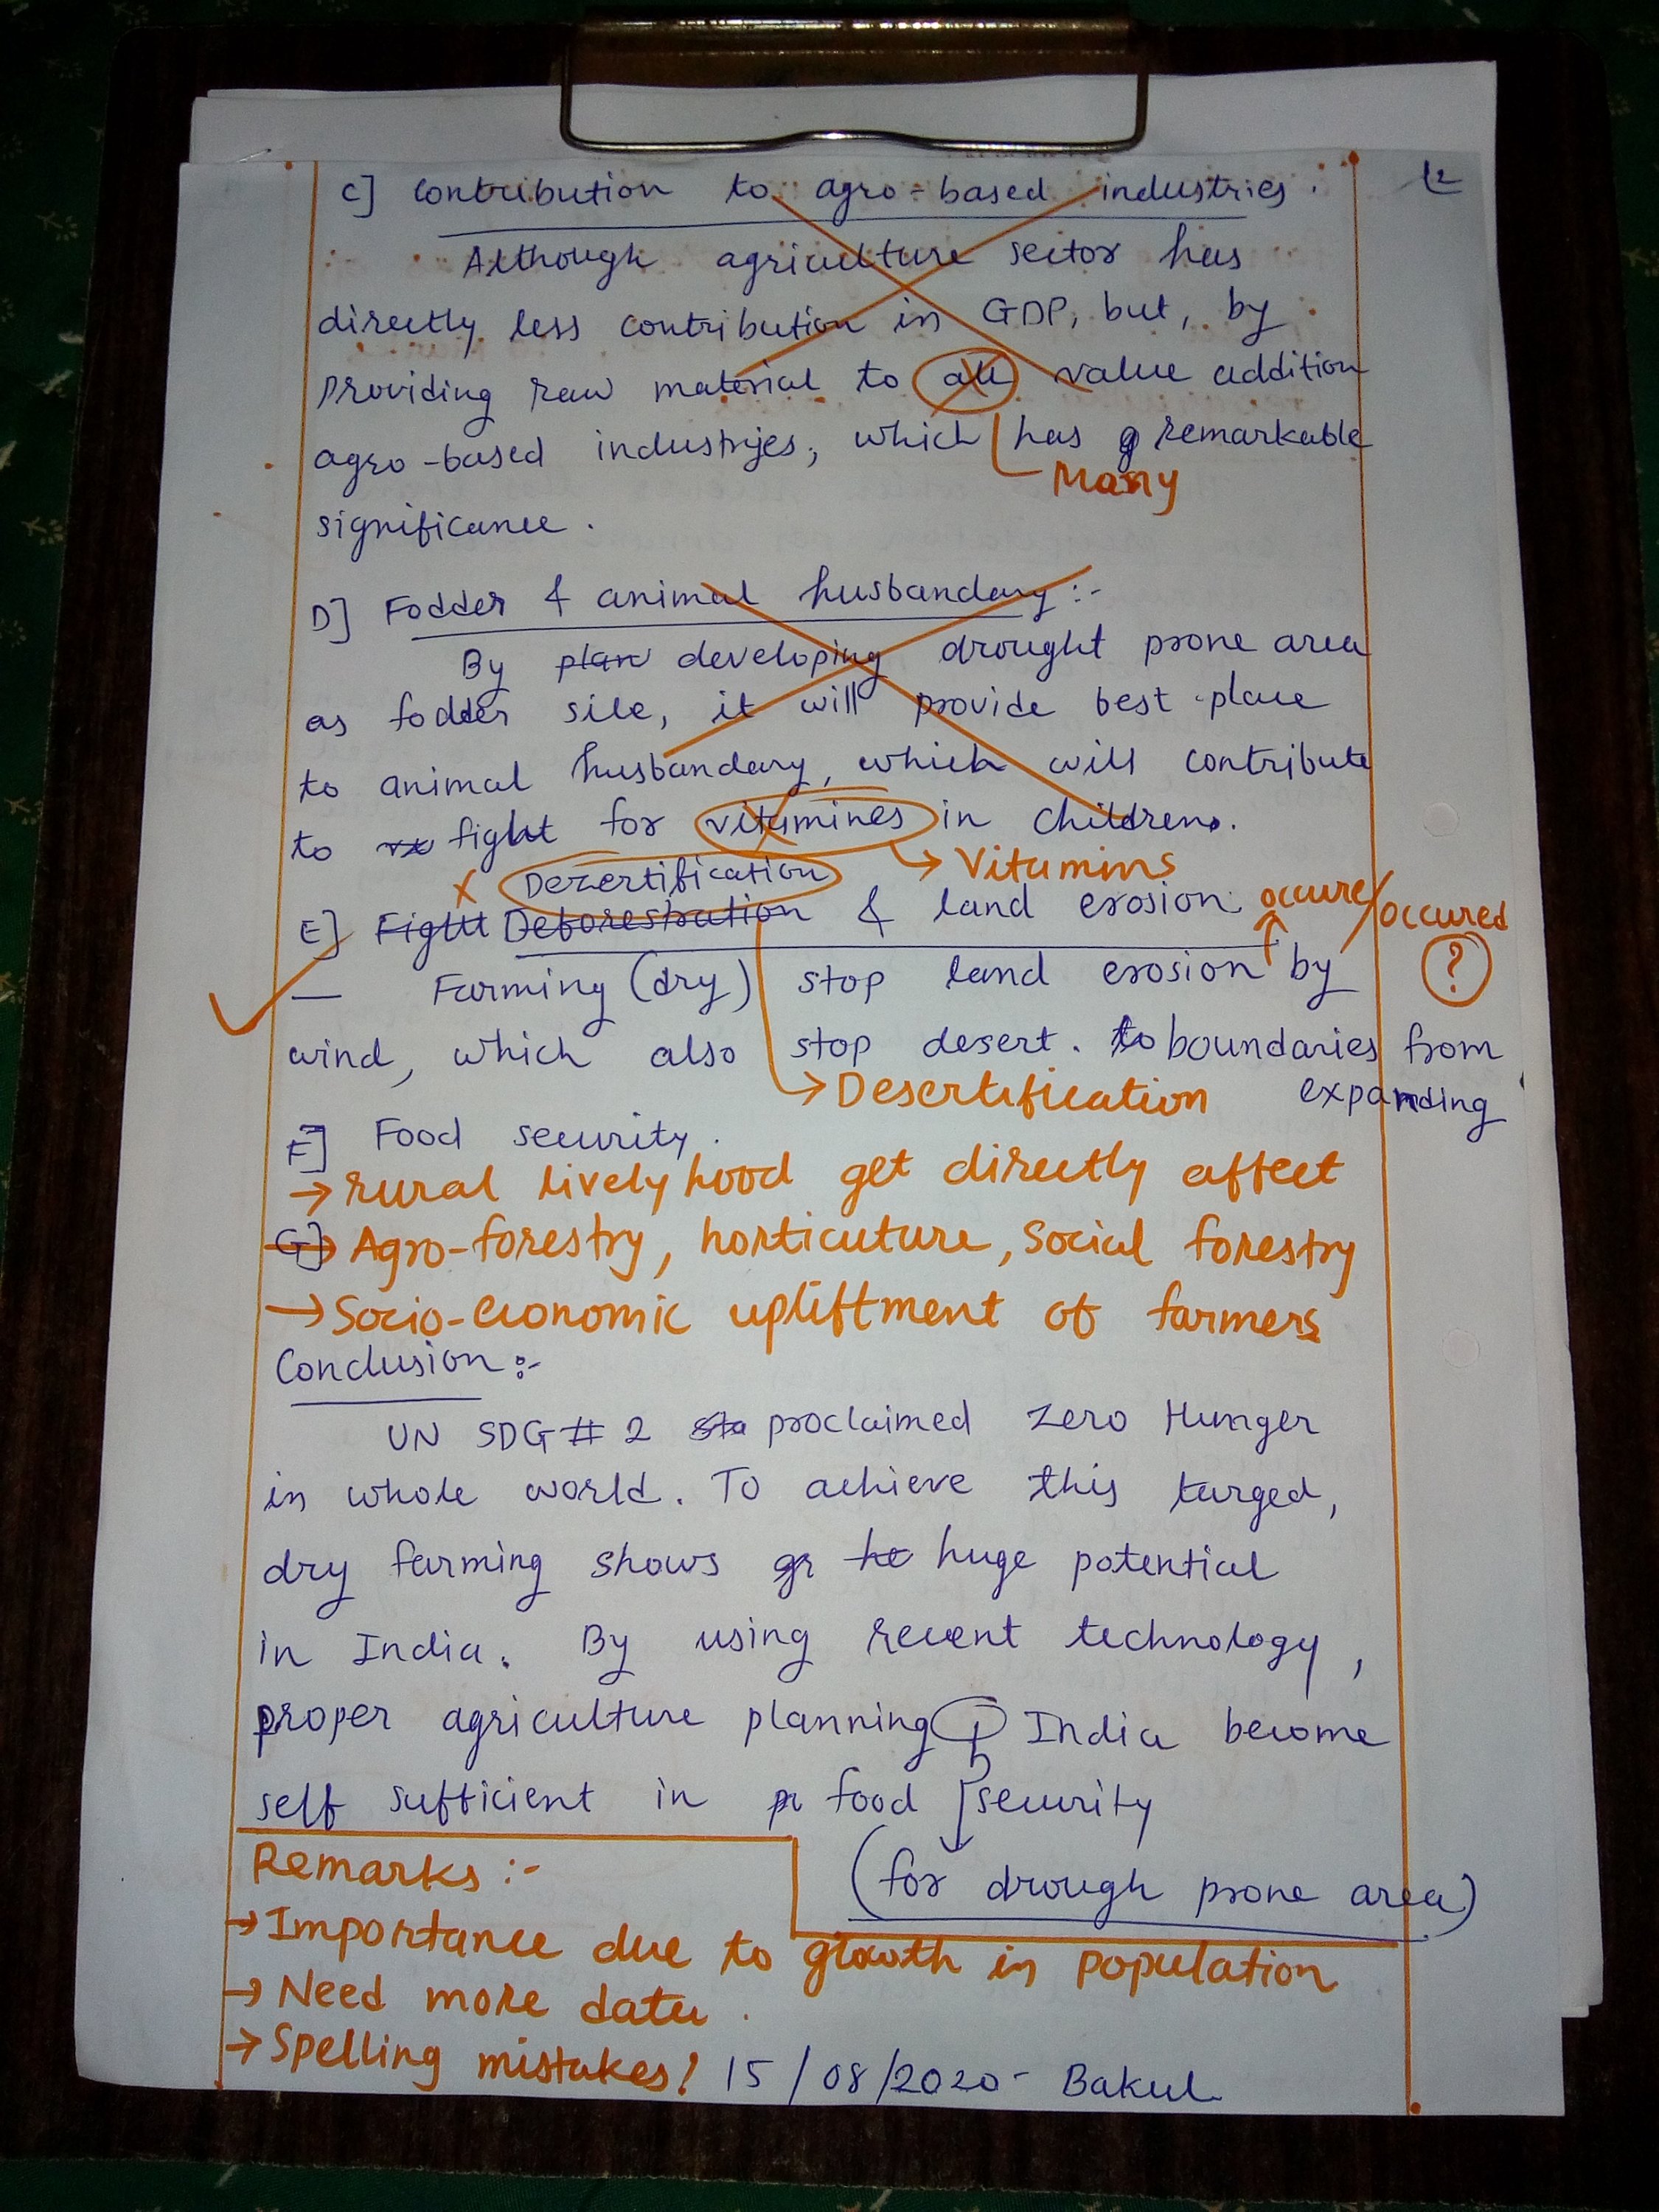 C] Contribution to agro-based industries. 12
Although agriculture sector has
directly less contribution in GDP, but, by
providing raw material to all value addition
agro-based industries, which has remarkable
Many
significance.
D] Fodder & animal husbandary:-
By plan developing drought prone area
as fodder site, it will provide best place
to animal husbandary, which will contribute
to fight for vitamines in children.
→ Vitamins
X Dezertification
E] Fight Deforestration & land erosion. occure/occured
— Farming (dry) stop land erosion by ?
wind, which also stop desert. to boundaries from
→ Desertification expanding
F] Food security.
→ rural livelyhood get directly affect
G] → Agro-forestry, horticuture, Social forestry
→ Socio-economic upliftment of farmers
Conclusion:-
UN SDG # 2 sta proclaimed Zero Hunger
in whole world. To achieve this targed,
dry farming shows gr he huge potential
in India. By using recent technology,
proper agriculture planning India become
self sufficient in food security
(for drough prone area)
Remarks:-
→ Importance due to growth in population
→ Need more data.
→ Spelling mistakes! 15/08/2020- Bakul